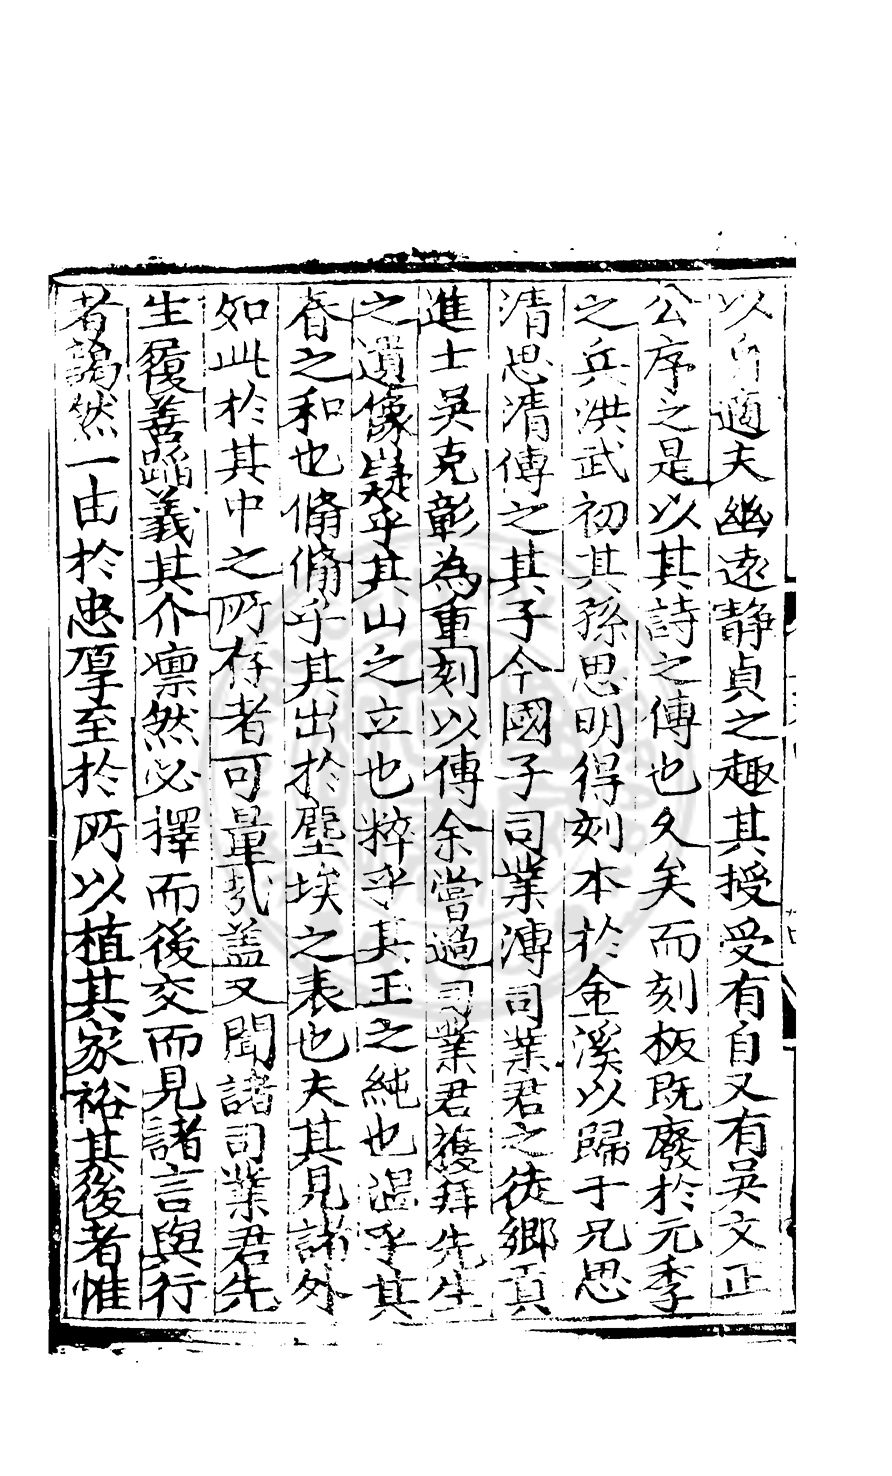 以自適夫幽遠静貞之趣其授受有自又有吳文正
公序之是以其詩之傳也久矣而刻板既廢於元季
之兵洪武初其孫思明得刻本於金溪以歸于兄思
清思清傳之其子今國子司業溥司業君之徒鄉貢
進士吳克彰為重刻以傳余嘗過司業君獲拜先生
之遺像嶷乎其山之立也粹乎其玉之純也温乎其
春之和也翛翛乎其出於塵埃之表也夫其見諸外
如此於其中之所存者可量哉蓋又聞諸司業君先
生履善蹈義其介凛然必擇而後交而見諸言與行
者藹然一由於忠厚至於所以植其家裕其後者惟